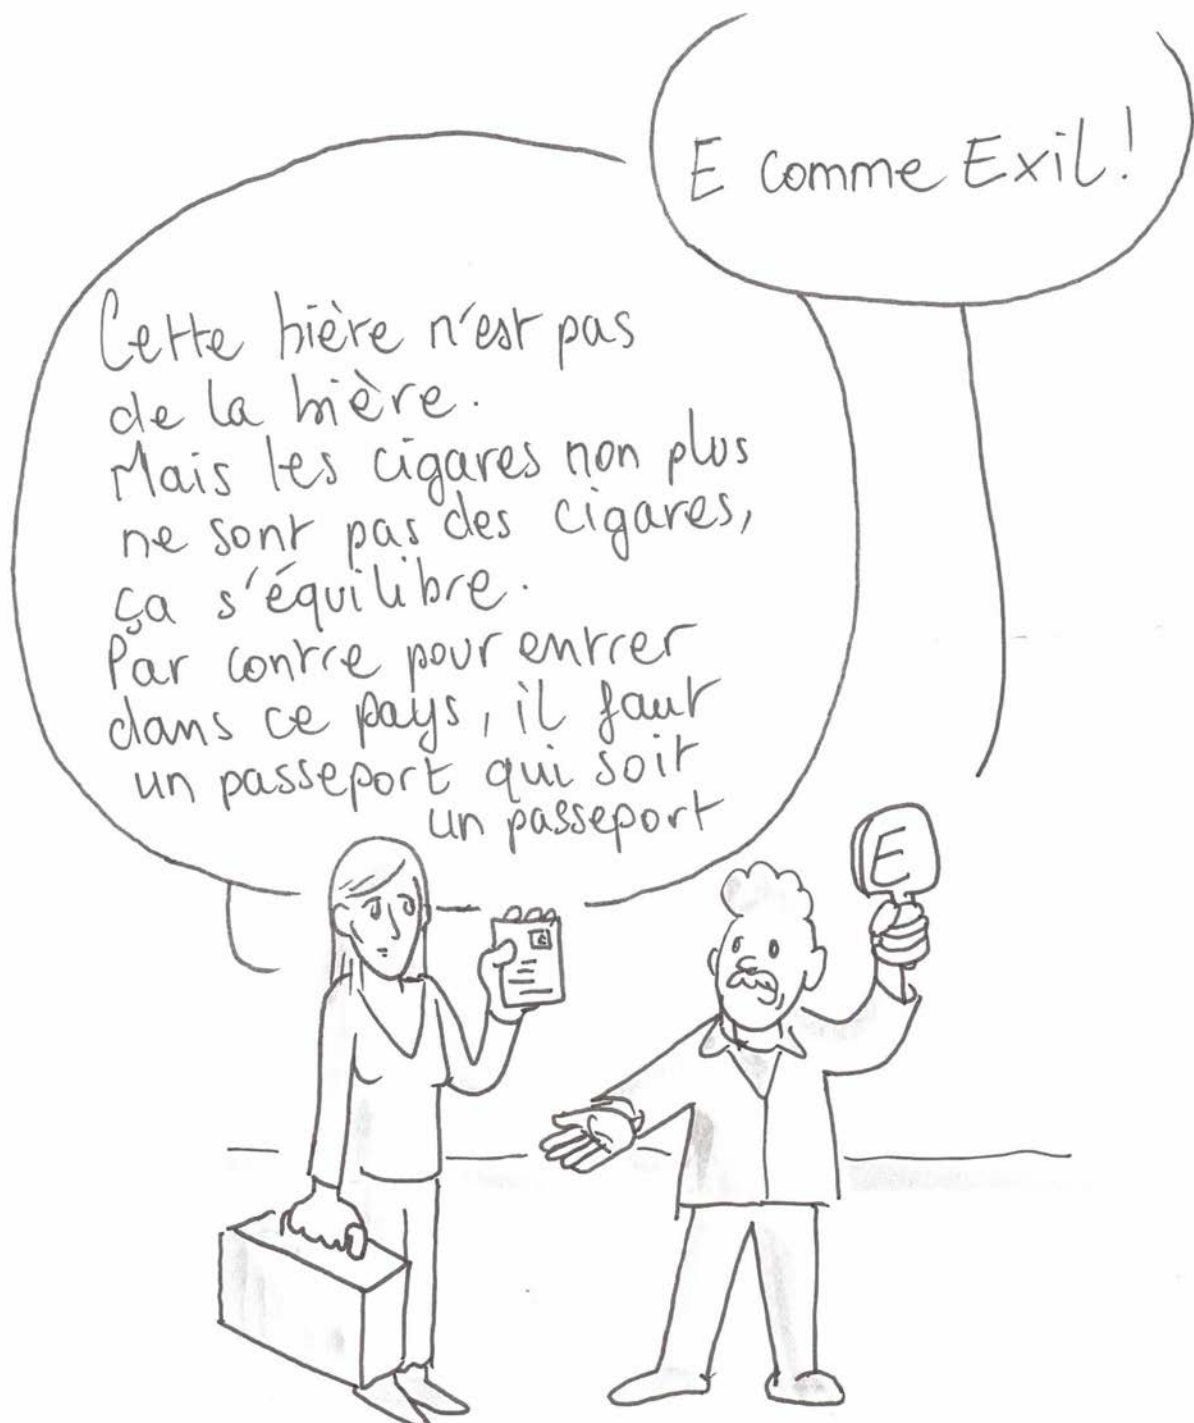 E comme Exil!
Cette bière n'est pas
de la bière.
Mais les cigares non plus
ne sont pas des cigares,
ça s'équilibre.
Par contre pour entrer
dans ce pays, il faut
un passeport qui soit
un passeport
E